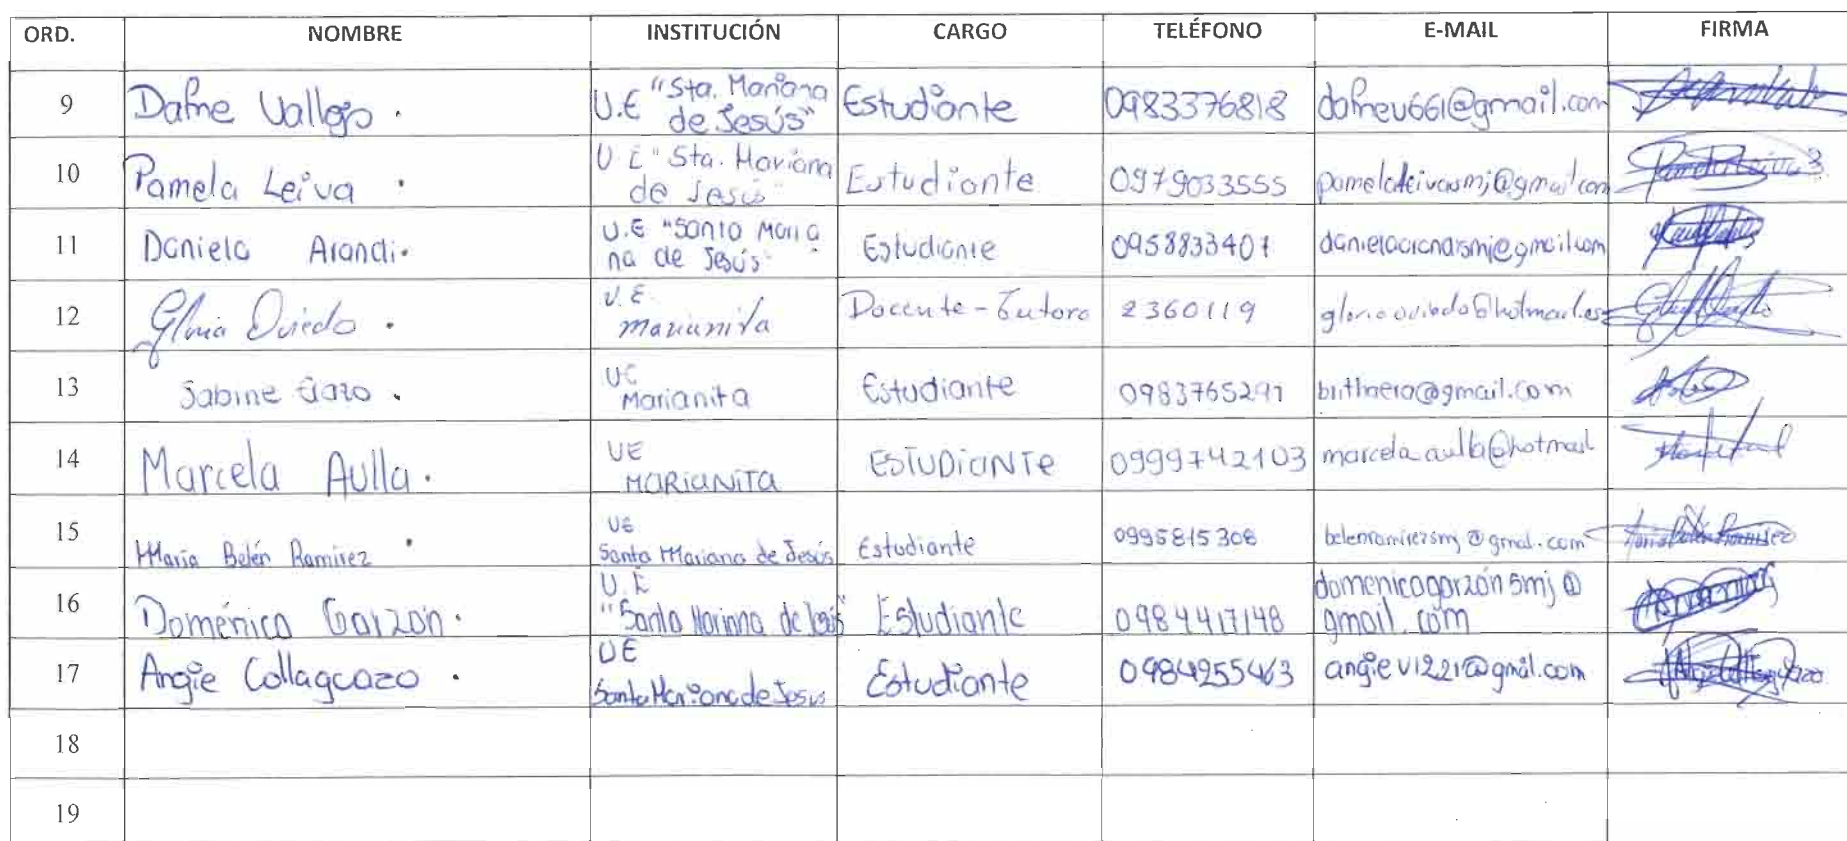 ORD. NOMBRE INSTITUCIÓN CARGO TELÉFONO E-MAIL FIRMA
9 Dafne Vallejo . U.E "Sta. Mariana de Jesús" Estudiante 0983376818 dafnev661@gmail.com
10 Pamela Leiva . U.E "Sta. Mariana de Jesús" Estudiante 0979033555 pamelaleivasmj@gmail.com
11 Daniela Arandi. U.E "Santa Maria na de Jesús" Estudiante 0958833401 danielaarandismj@gmail.com
12 Gloria Oviedo . U.E. Marianita Docente - Tutora 2360119
13 Sabine Erazo . UE Marianita Estudiante 0983765291
14 Marcela Aulla. UE MARIANITA ESTUDIANTE 0999742103 marcela.aulla@hotmail
15 María Belén Ramírez . UE Santa Mariana de Jesús Estudiante 0995815308 belenramirezsmj@gmail.com
16 Doménica Garzón. U.E "Santa Mariana de Jesús" Estudiante 0984417148 domenicagarzónsmj@
gmail.com
17 Angie Collaguazo . UE Santa Mariana de Jesus Estudiante 0984255463 angiev1221@gmail.com
18
19